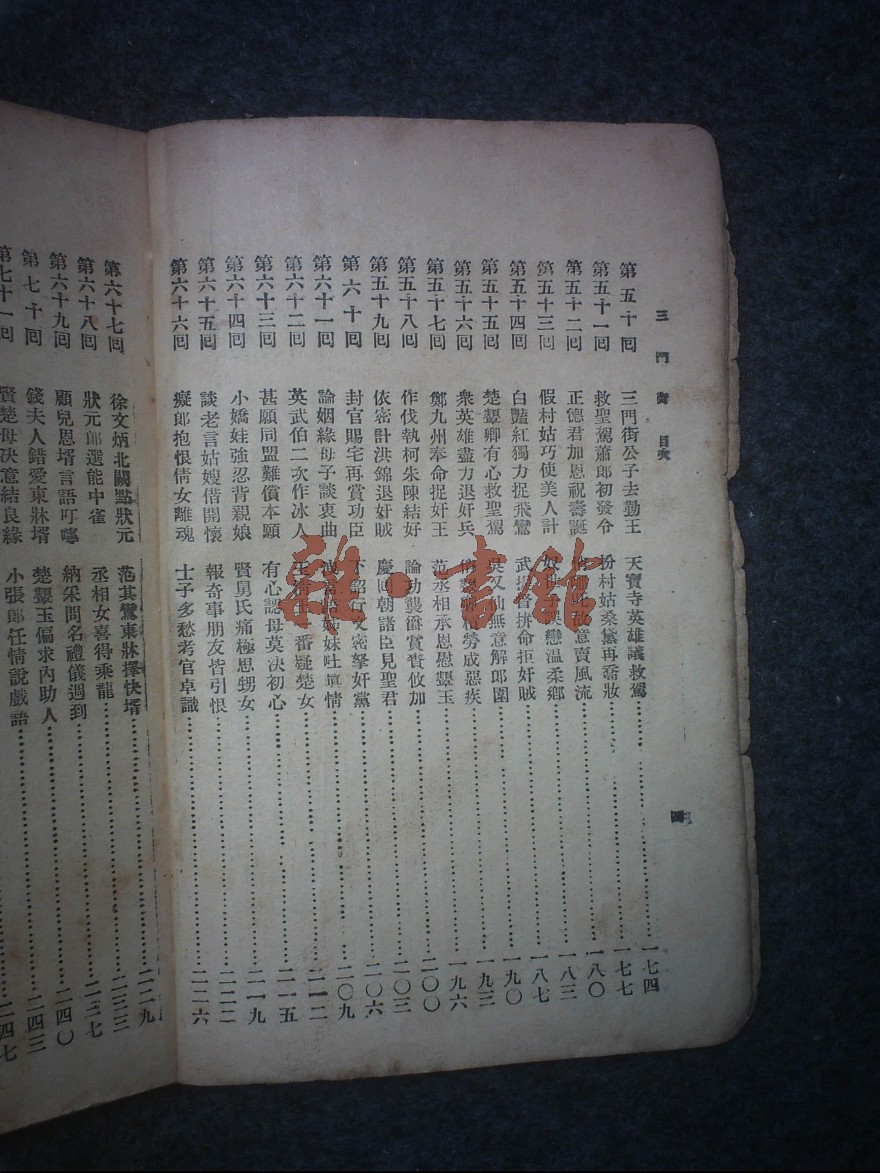 三門街 目次
四
第五十回 三門街公子去勤王 天寶寺英雄議救駕 一七四
第五十一回 救聖駕蕭郎初發令 扮村姑桑黛再喬妝 一七七
第五十二回 正德君加恩祝壽誕 故意賣風流 一八〇
第五十三回 假村姑巧使美人計 戀溫柔鄉 一八三
第五十四回 白豔紅獨力捉飛鸞 武 拚命拒奸賊 一八七
第五十五回 楚顰卿有心救聖駕 吳又仙無意解郎圍 一九〇
第五十六回 衆英雄盡力退奸兵 積勞成惡疾 一九三
第五十七回 鄭九州奉命捉奸王 范丞相承恩慰顰玉 一九六
第五十八回 作伐執柯朱陳結好 論功襲爵賞賚攸加 二〇〇
第五十九回 依密計洪錦退奸賊 慶回朝諸臣見聖君 二〇三
第六十回 封官賜宅再賞功臣 下詔行文密拏奸黨 二〇六
第六十一回 論姻緣母子談衷曲 姊妹吐眞情 二〇九
第六十二回 英武伯二次作冰人 一番疑楚女 二一二
第六十三回 甚願同盟難償本願 有心認母莫決初心 二一五
第六十四回 小嬌娃強忍背親娘 賢舅氏痛極思甥女 二一九
第六十五回 談老言姑嫂借開懷 報奇事朋友皆引恨 二二二
第六十六回 癡郎抱恨倩女離魂 士子多愁考官卓識 二二六
第六十七回 徐文炳北闕點狀元 范其鸞東牀擇快壻 二二九
第六十八回 狀元郎選能中雀 丞相女喜得乘龍 二三三
第六十九回 顧兒恩壻言語叮嚀 納采問名禮儀週到 二三七
第七十回 錢夫人錯愛東牀壻 楚顰玉偏求內助人 二四〇
第七十一回 賢楚母決意結良緣 小張郎任情說戲語 二四三
二四七